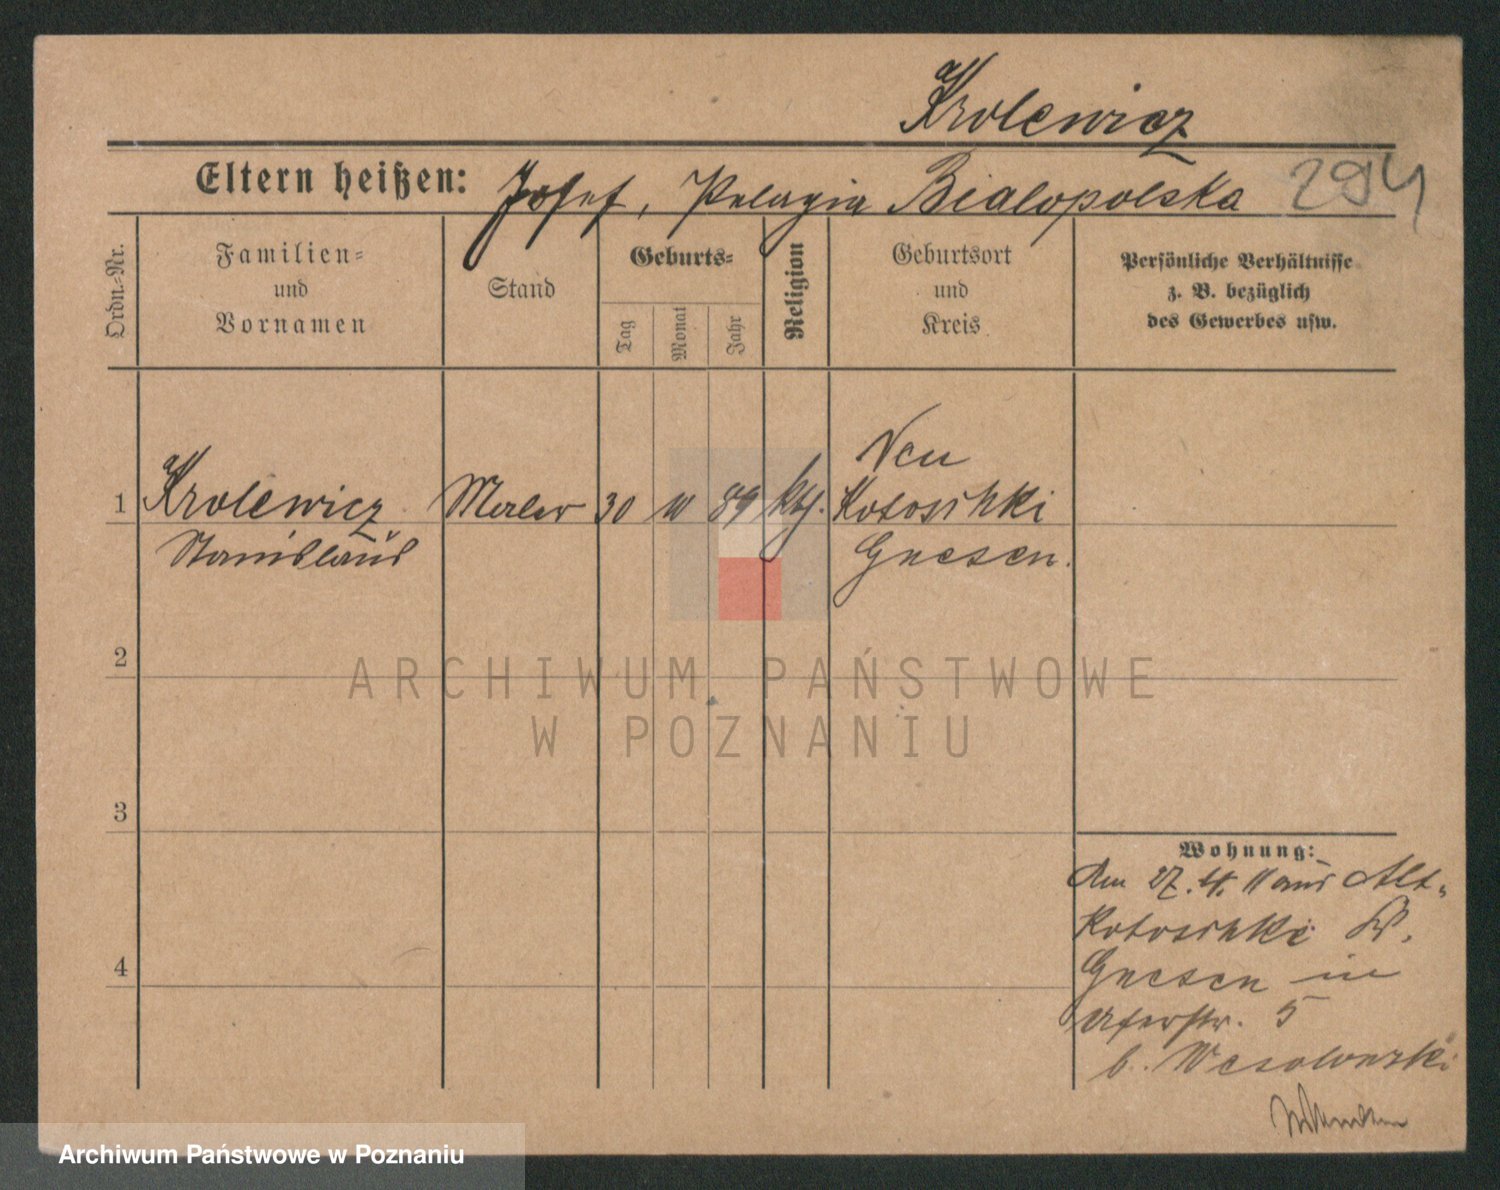 Krolewicz
Eltern heißen: Josef, Pelagia Bialopolska 294
Ordn.-Nr.
Familien-
und
Vornamen
Stand
Geburts-
Tag
Monat
Jahr
Religion
Geburtsort
und
Kreis
Persönliche Verhältnisse
z. B. bezüglich
des Gewerbes usw.
1 Krolewicz Maler 30 89 kth. Neu
Kotoschki
Stanislaus Gnesen.
2
ARCHIWUM PAŃSTWOWE
W POZNANIU
3
Wohnung:
Am 27. 4. 11 aus Alt-
4 Kotoschki Kr.
Gnesen in
Uferstr. 5
b. Wesolowski
Archiwum Państwowe w Poznaniu